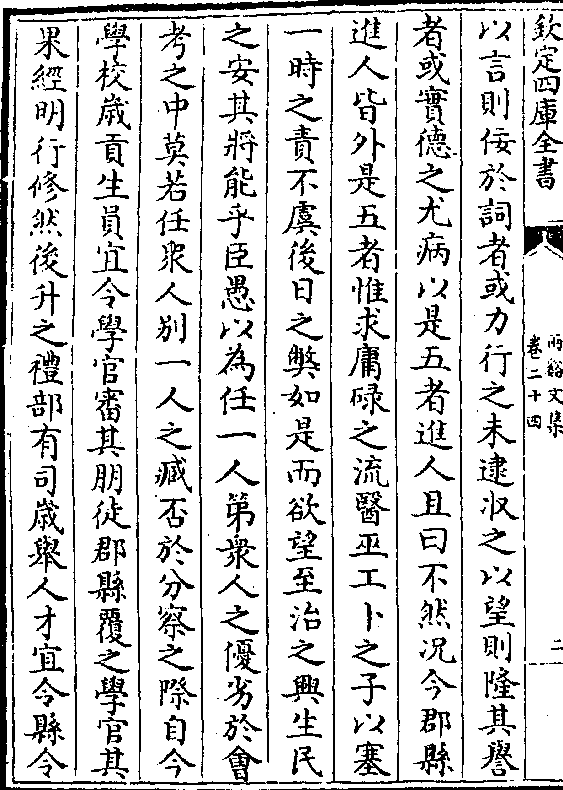 欽定四庫全書
兩谿文集
卷二十四
二
以言則佞於詞者或力行之未逮収之以望則隆其譽
者或實德之尤病以是五者進人且曰不然况今郡縣
進人皆外是五者惟求庸碌之流醫巫工卜之子以塞
一時之責不虞後日之弊如是而欲望至治之興生民
之安其將能乎臣愚以為任一人第衆人之優劣於會
考之中莫若任衆人别一人之臧否於分察之際自今
學校歲貢生員宜令學官審其朋徒郡縣覆之學官其
果經明行修然後升之禮部有司歲舉人才宜令縣令